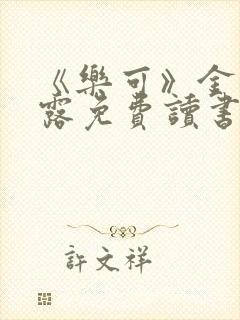 《樂可》金
露免費讀書
許文祥